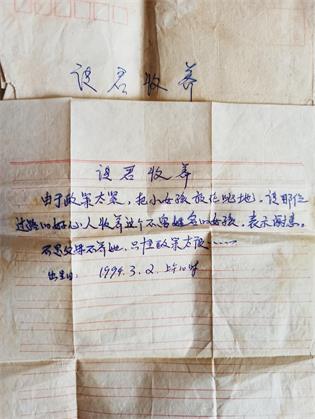 请君收养
请君收养
由于政策太紧，把小女孩放在此地。请那位
过路的好心人收养这个不留姓名的女孩，表示谢意。
不是父母不养她，只怪政策太使……
出生日：1994.3.2.上午10时